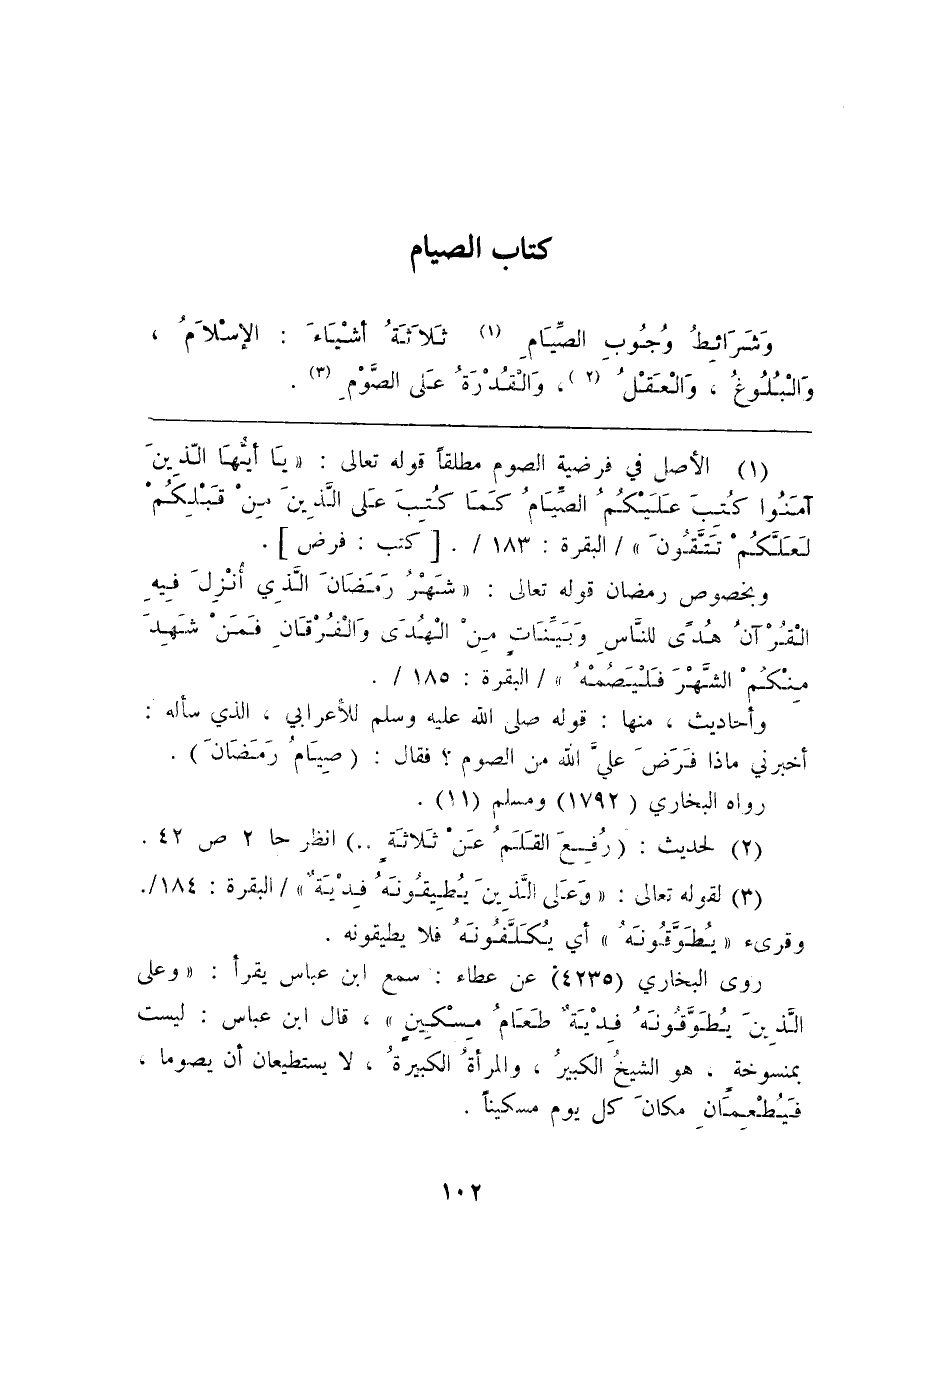 كتاب الصيام
وَشَرَائِطُ وُجُوبِ الصِّيَامِ (١) ثَلاَثَةُ أشْيَاءَ : الإسْلاَمُ ،
وَالْبُلُوغُ ، وَالْعَقْلُ (٢) ، وَالْقُدْرَةُ عَلَى الصَّوْمِ (٣) .
(١) الأصل في فرضية الصوم مطلقاً قوله تعالى : « يَا أيُّهَا الَّذِينَ
آمَنُوا كُتِبَ عَلَيْكُمُ الصِّيَامُ كَمَا كُتِبَ عَلَى الَّذِينَ مِنْ قَبْلِكُمْ
لَعَلَّكُمْ تَتَّقُونَ » / البقرة : ١٨٣ / . [ كتب : فرض ] .
وبخصوص رمضان قوله تعالى : « شَهْرُ رَمَضَانَ الَّذِي أُنْزِلَ فِيهِ
الْقُرْآنُ هُدًى للنَّاسِ وَبَيِّنَاتٍ مِنْ الْهُدَى وَالْفُرْقَانِ فَمَنْ شَهِدَ
مِنْكُمْ الشَّهْرَ فَلْيَصُمْهُ » / البقرة : ١٨٥ / .
وأحاديث ، منها : قوله صلى الله عليه وسلم للأعرابي ، الذي سأله :
أخبرني ماذا فَرَضَ عليَّ الله من الصوم ؟ فقال : ( صِيَامُ رَمَضَانَ ) .
رواه البخاري ( ١٧٩٢) ومسلم (١١) .
(٢) لحديث : ( رُفِعَ القَلَمُ عَنْ ثَلاثَةٍ ..) انظر حا ٢ ص ٤٢ .
(٣) لقوله تعالى : « وَعَلَى الَّذِينَ يُطِيقُونَهُ فِدْيَةٌ » / البقرة : ١٨٤/.
وقرىء « يُطَوَّقُونَهُ » أي يُكَلَّفُونَهُ فلا يطيقونه .
روى البخاري (٤٢٣٥) عن عطاء : سمع ابن عباس يقرأ : « وعلى
الَّذِينَ يُطَوَّقُونَهُ فِدْيَةٌ طَعَامُ مِسْكِينٍ » ، قال ابن عباس : ليست
بمنسوخةٍ ، هو الشيخُ الكبيرُ ، والمرأةُ الكبيرةُ ، لا يستطيعان أن يصوما ،
فَيُطْعِمَانِ مكانَ كل يوم مسكيناً .
١٠٢